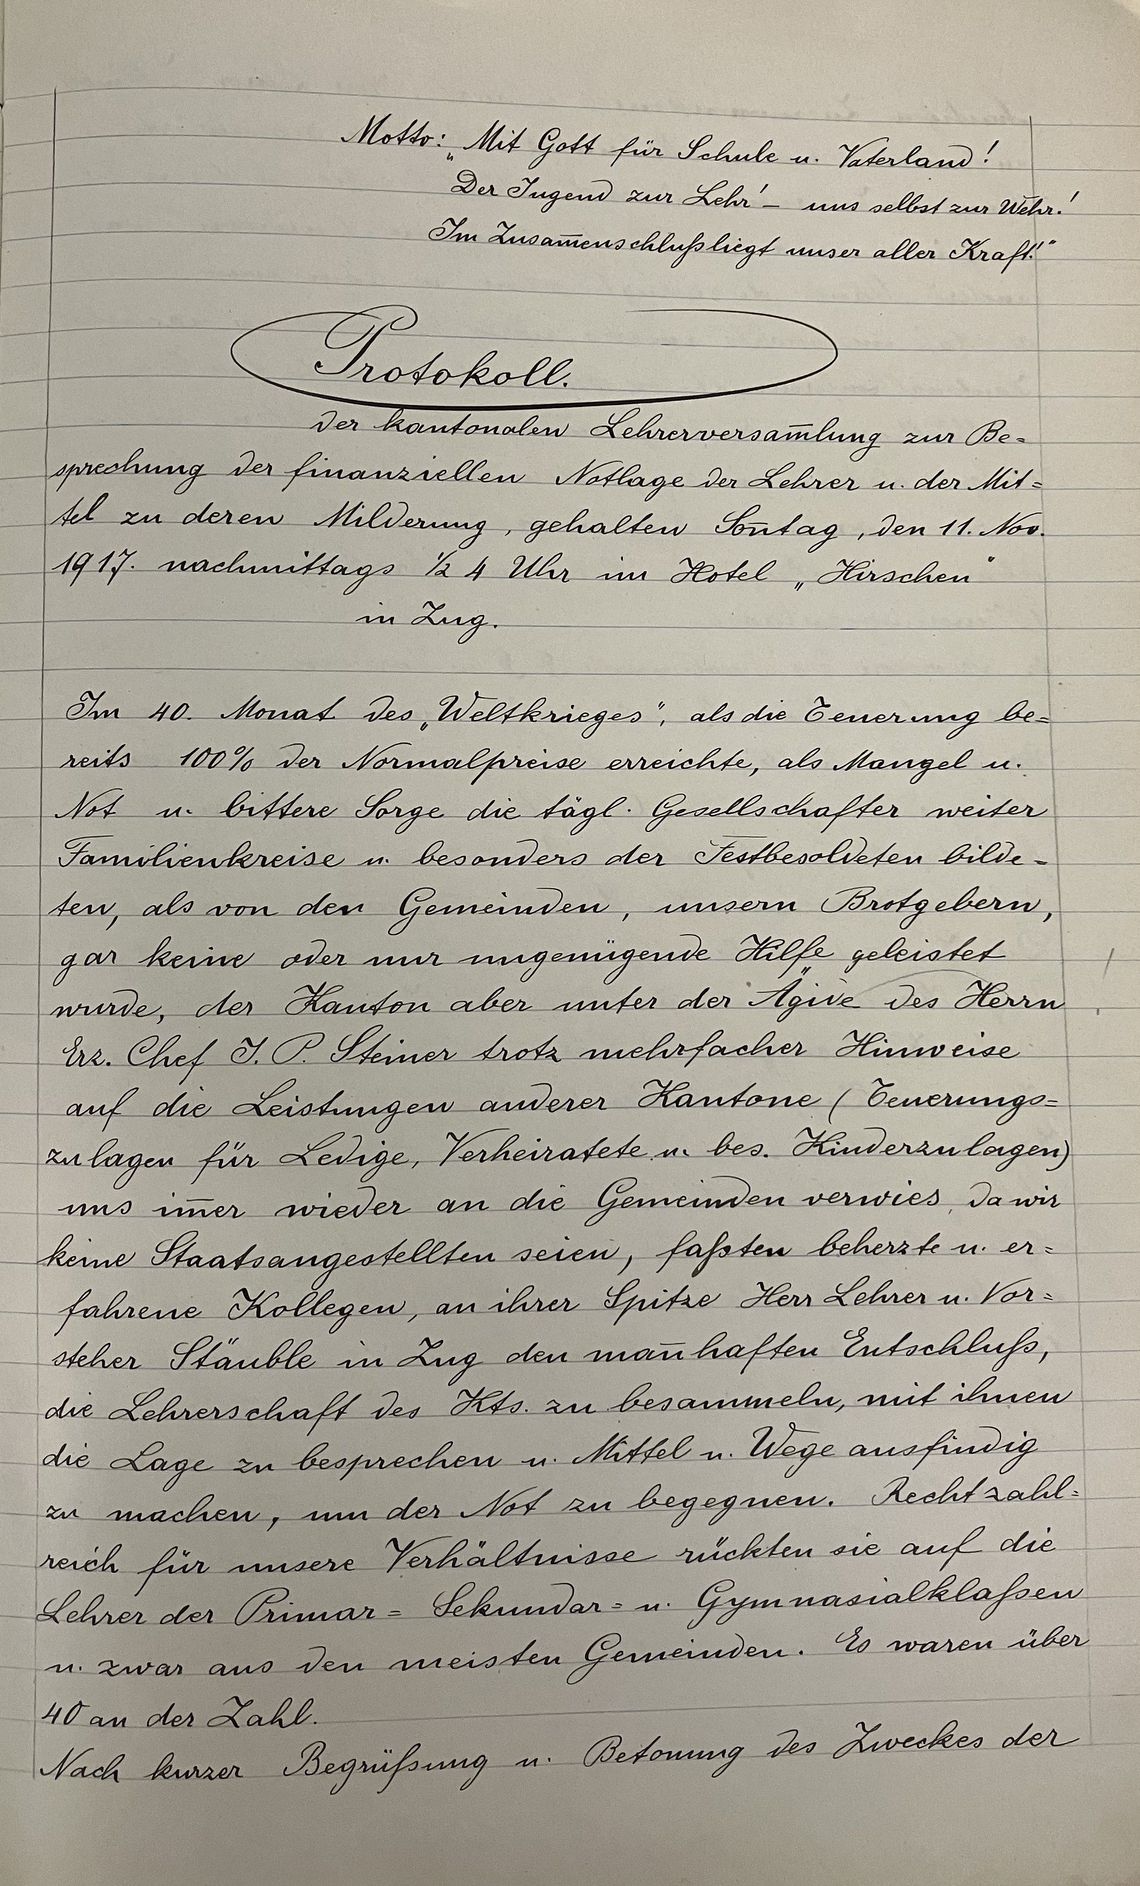 Motto: „Mit Gott für Schule u. Vaterland!
Der Jugend zur Lehr' – uns selbst zur Wehr!
Im Zusam̄enschluß liegt unser aller Kraft!"
Protokoll.
der kantonalen Lehrerversam̄lung zur Be=
sprechung der finanziellen Notlage der Lehrer u. der Mit=
tel zu deren Milderung, gehalten Son̄tag, den 11. Nov.
1917. nachmittags ½ 4 Uhr im Hotel „Hirschen"
in Zug.
Im 40. Monat des „Weltkrieges", als die Teuerung be=
reits 100% der Normalpreise erreichte, als Mangel u.
Not u. bittere Sorge die tägl. Gesellschafter weiter
Familienkreise u. besonders der Festbesoldeten bilde-
ten, als von den Gemeinden, unsern Brotgebern,
gar keine oder nur ungenügende Hilfe geleistet
wurde, der Kanton aber unter der Ägide des Herrn
Erz. Chef J. P. Steiner trotz mehrfacher Hinweise
auf die Leistungen anderer Kantone (Teuerungs=
zulagen für Ledige, Verheiratete u. bes. Kinderzulagen)
uns im̄er wieder an die Gemeinden verwies, da wir
keine Staatsangestellten seien, faßten beherzte u. er=
fahrene Kollegen, an ihrer Spitze Herr Lehrer u. Vor=
steher Stäuble in Zug den man̄haften Entschluß,
die Lehrerschaft des Kts. zu besammeln, mit ihnen
die Lage zu besprechen u. Mittel u. Wege ausfindig
zu machen, um der Not zu begegnen. Recht zahl=
reich für unsere Verhältnisse rückten sie auf die
Lehrer der Primar= Sekundar= u. Gymnasialklaßen
u. zwar aus den meisten Gemeinden. Es waren über
40 an der Zahl.
Nach kurzer Begrüßung u. Betonung des Zweckes der